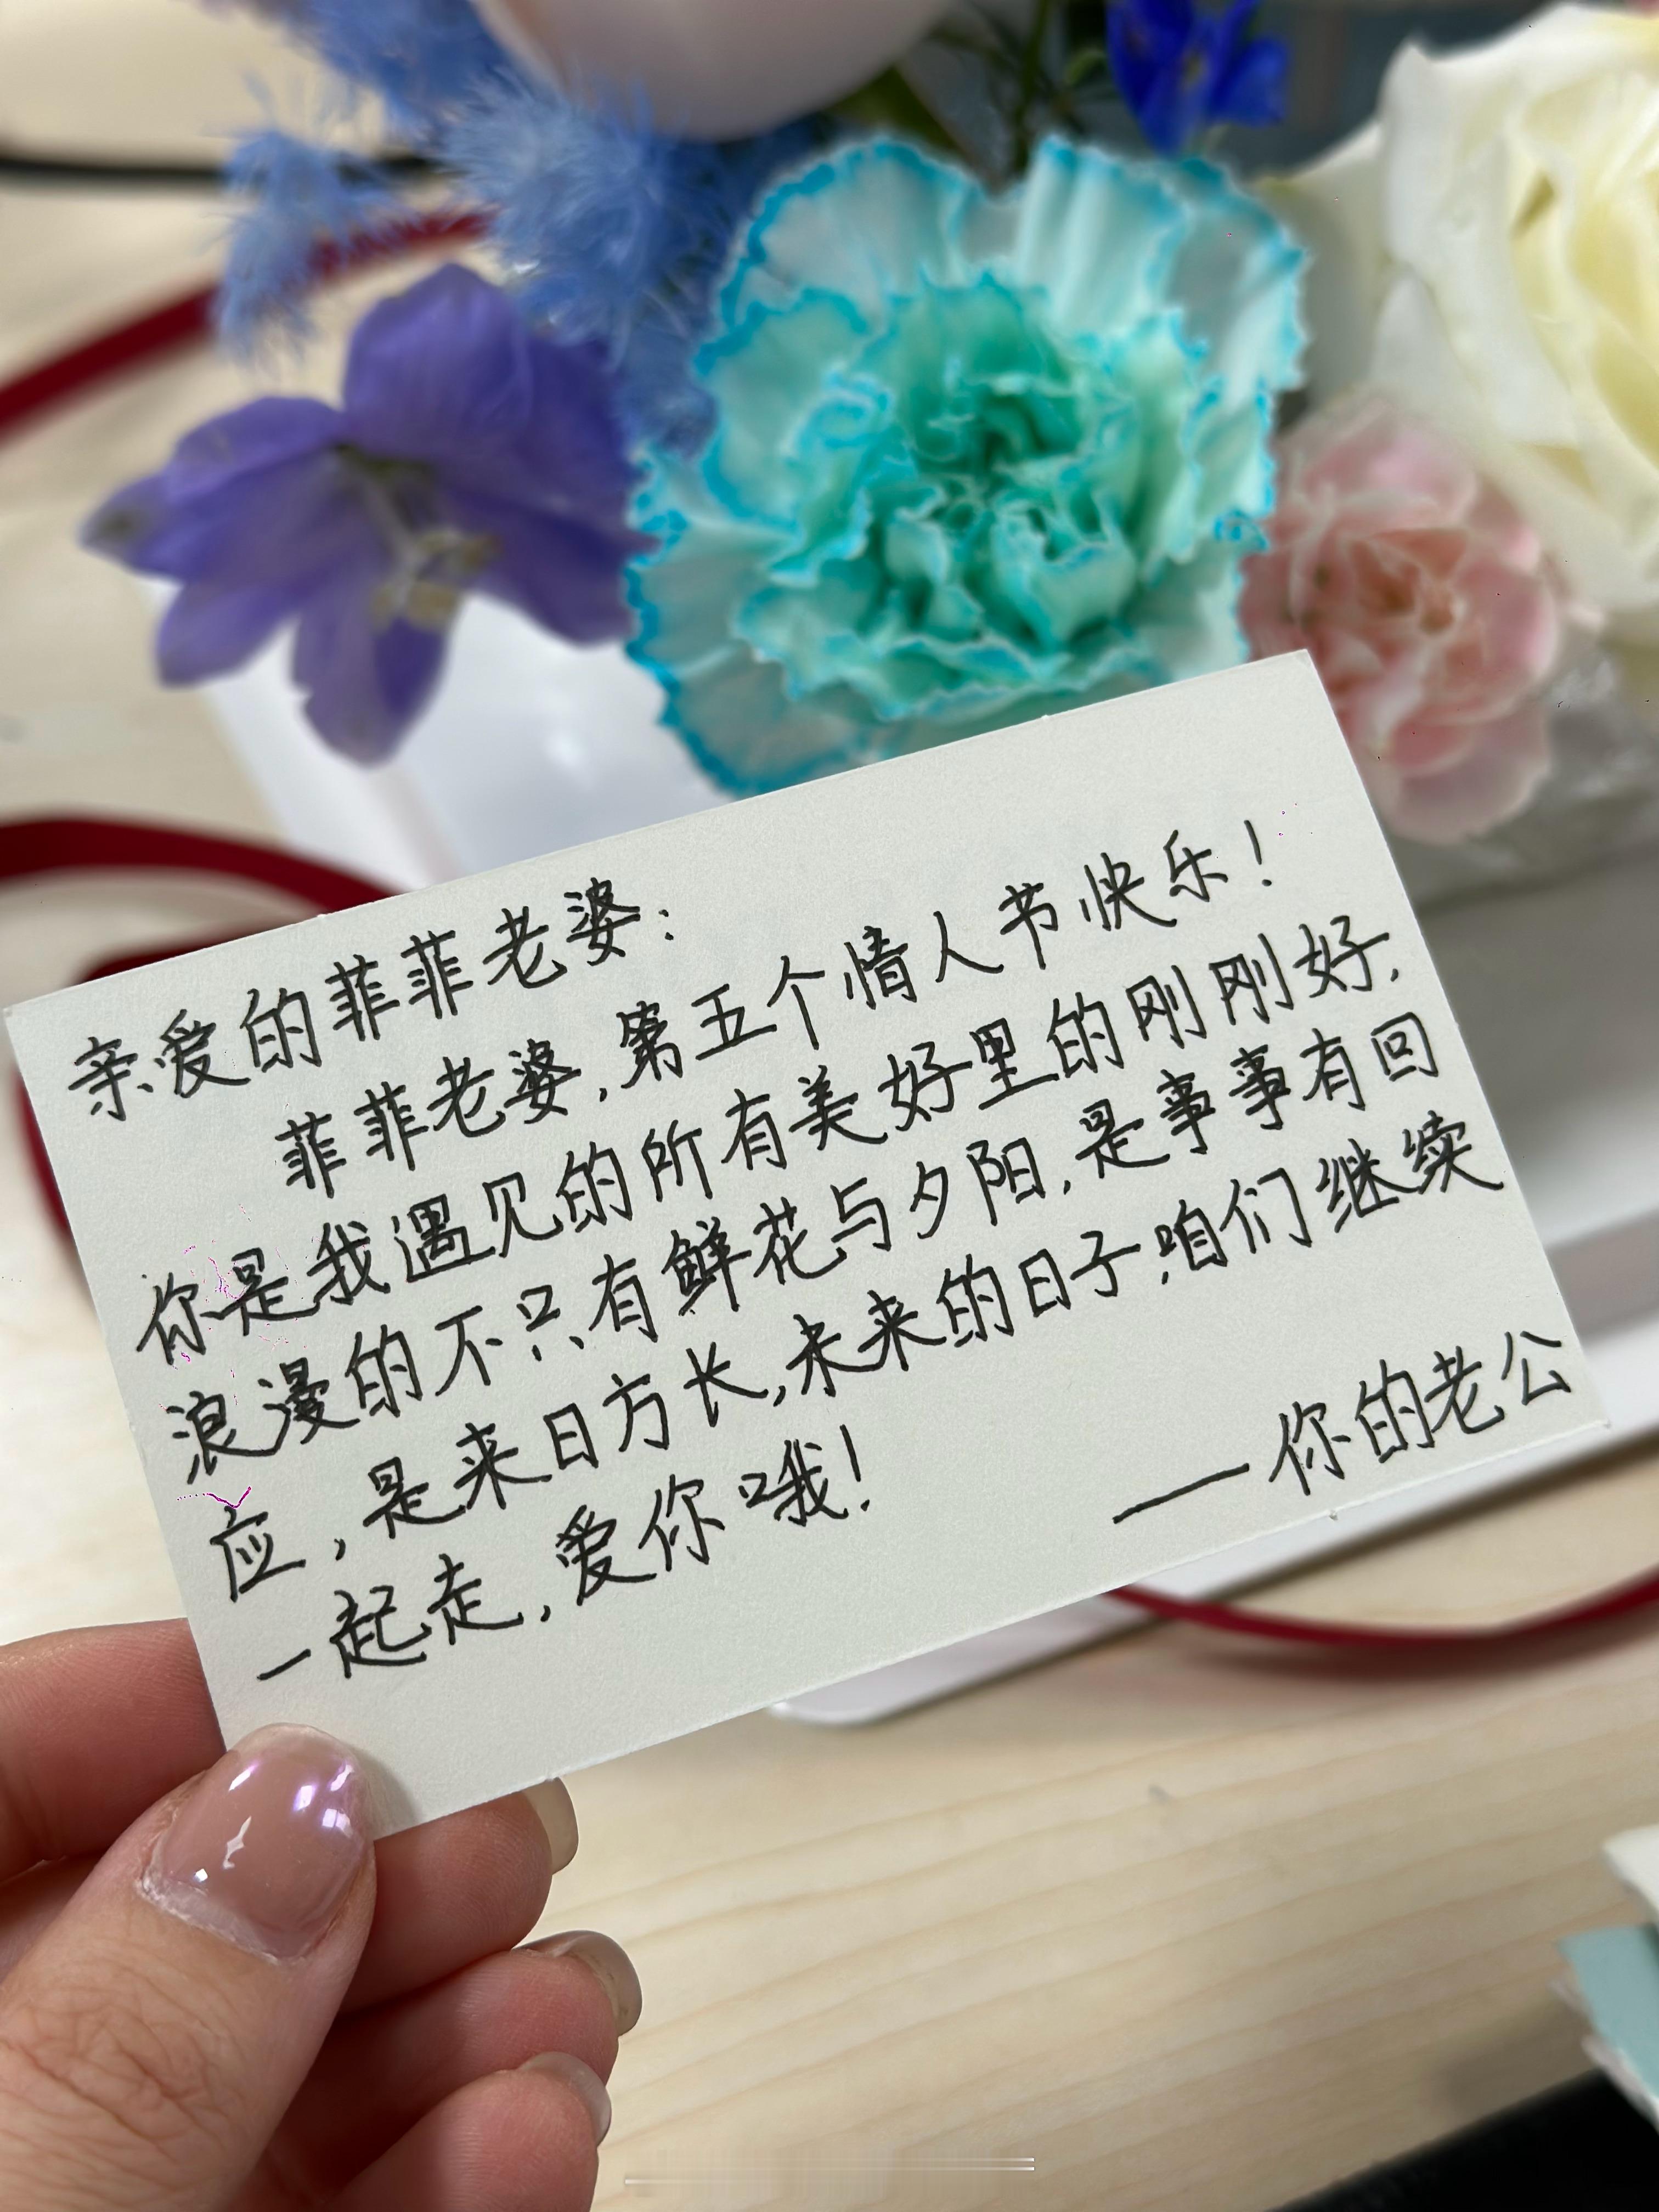 亲爱的菲菲老婆：
菲菲老婆，第五个情人节快乐！
你是我遇见的所有美好里的刚刚好，
浪漫的不只有鲜花与夕阳，是事事有回
应，是来日方长，未来的日子，咱们继续
一起走，爱你哦！
——你的老公